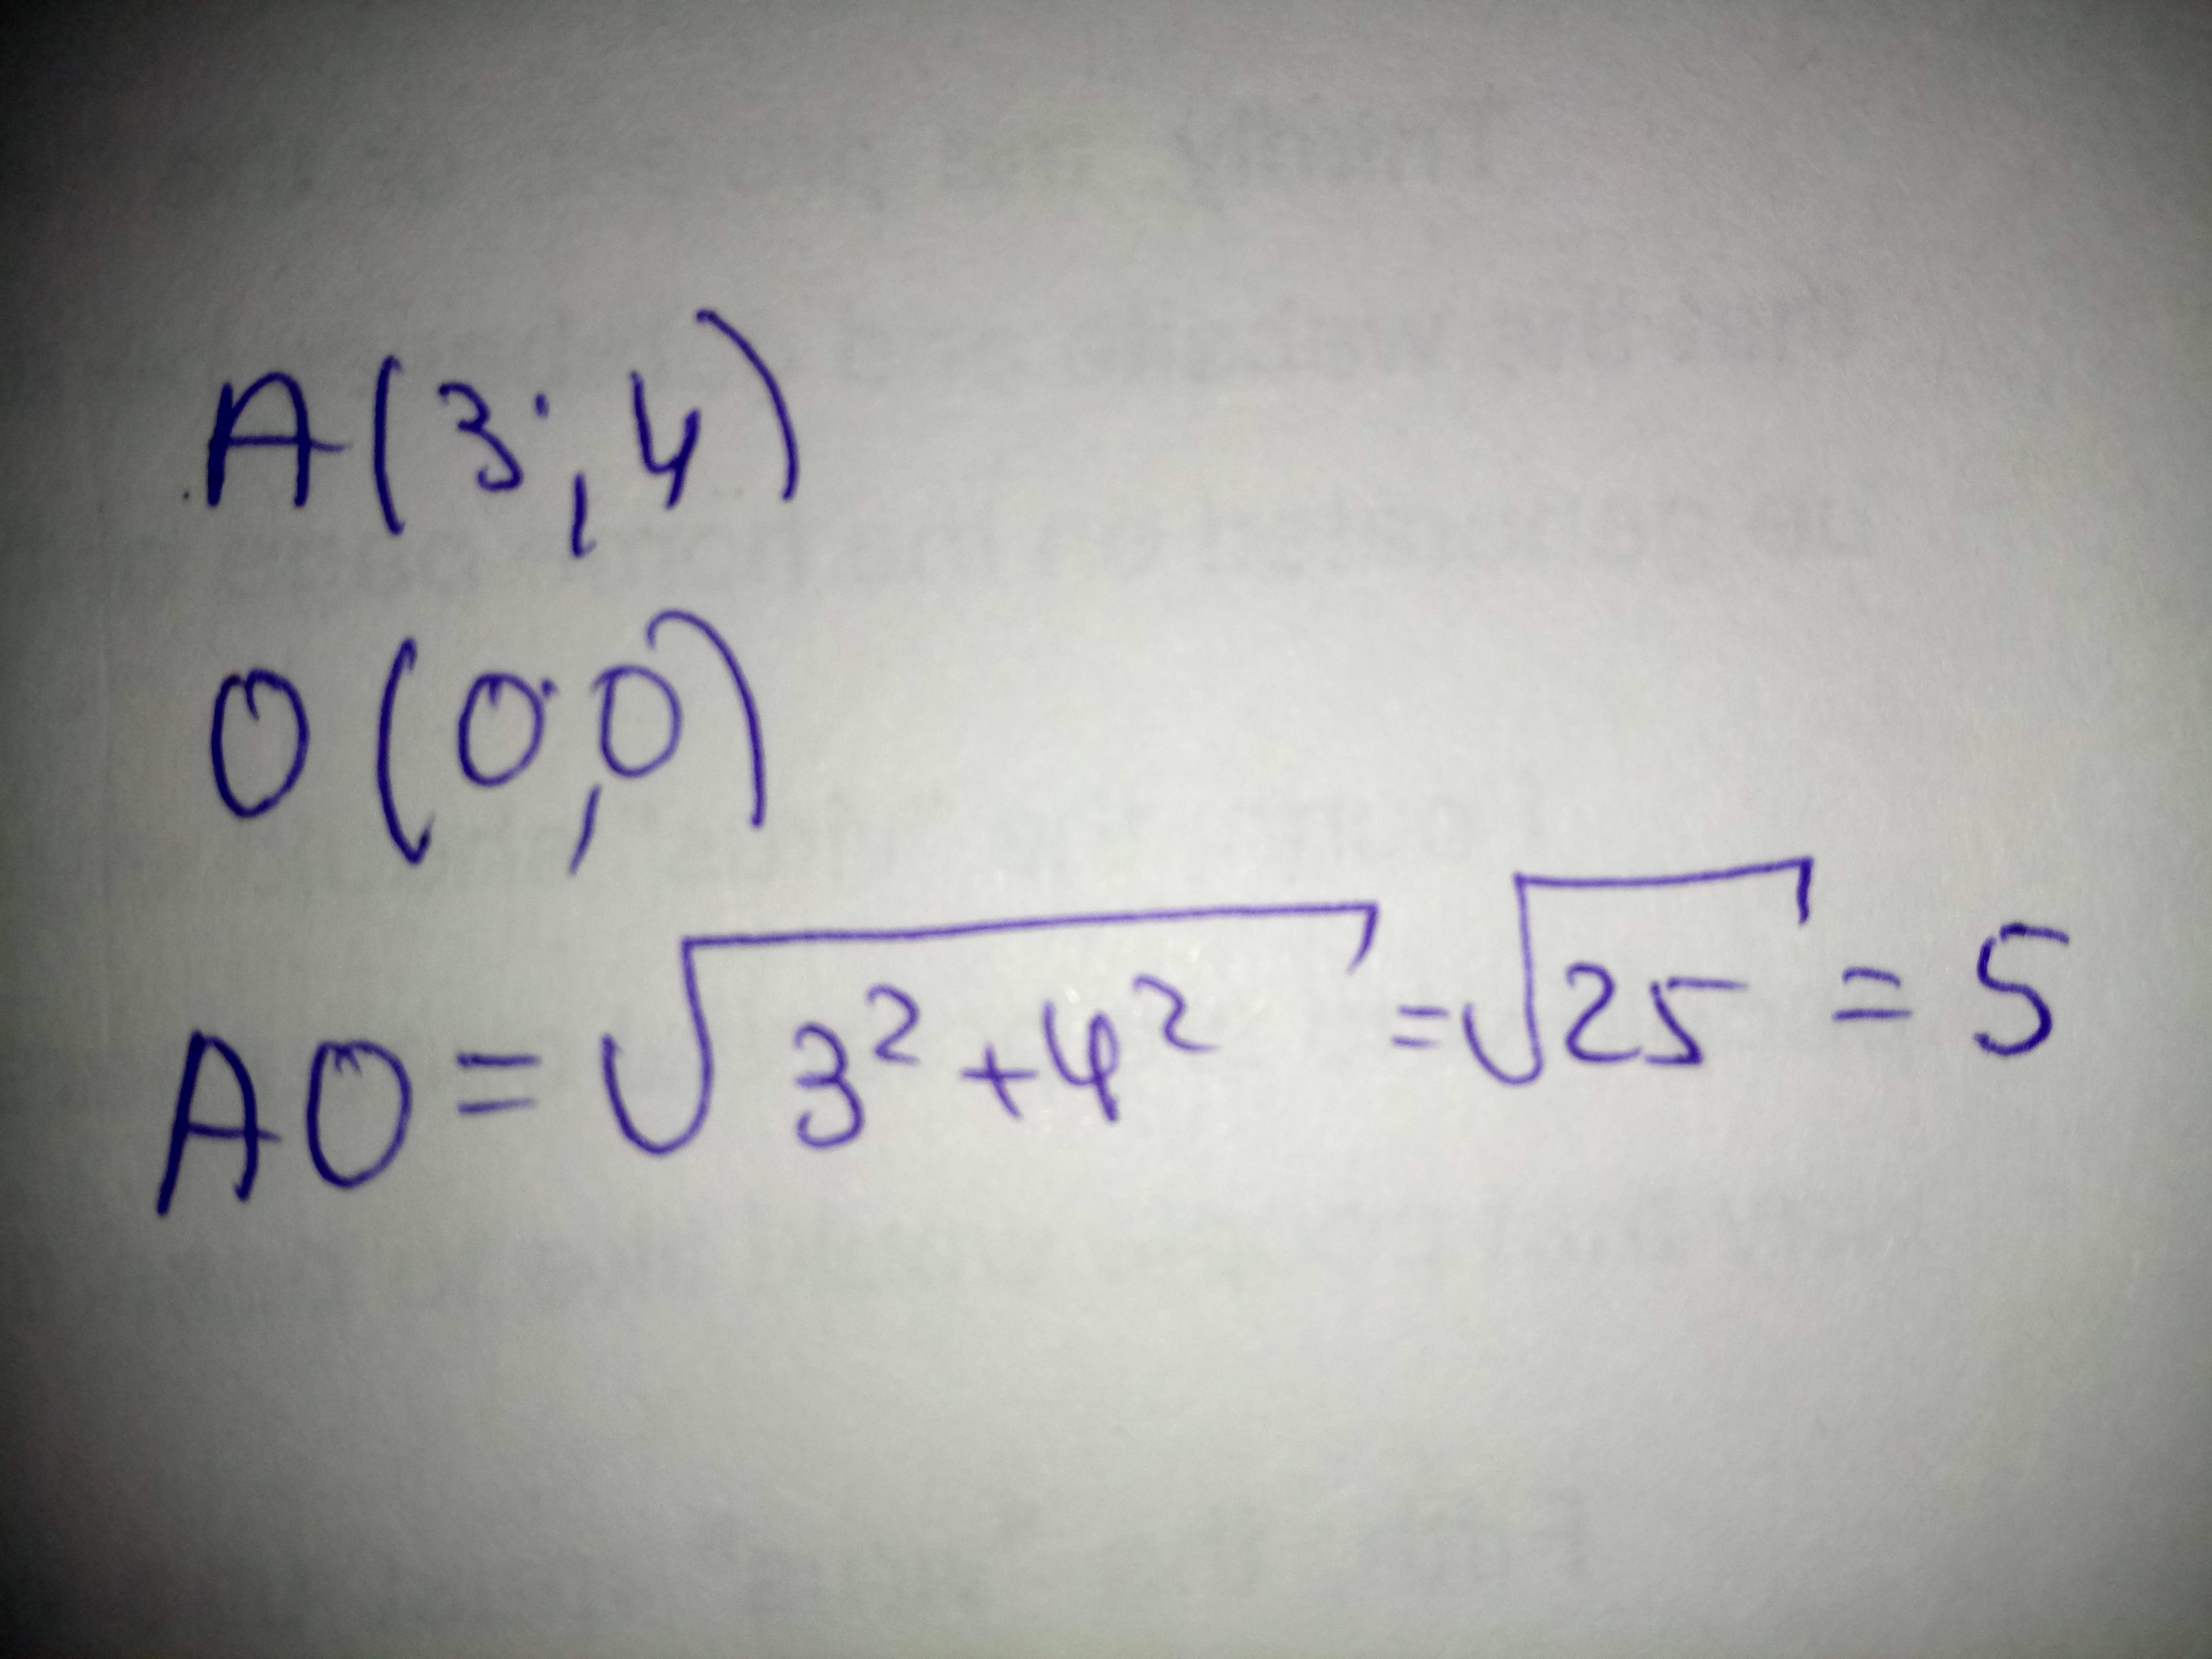 A(3;4)
O(0;0)
AO=√3²+4² =√25 = 5